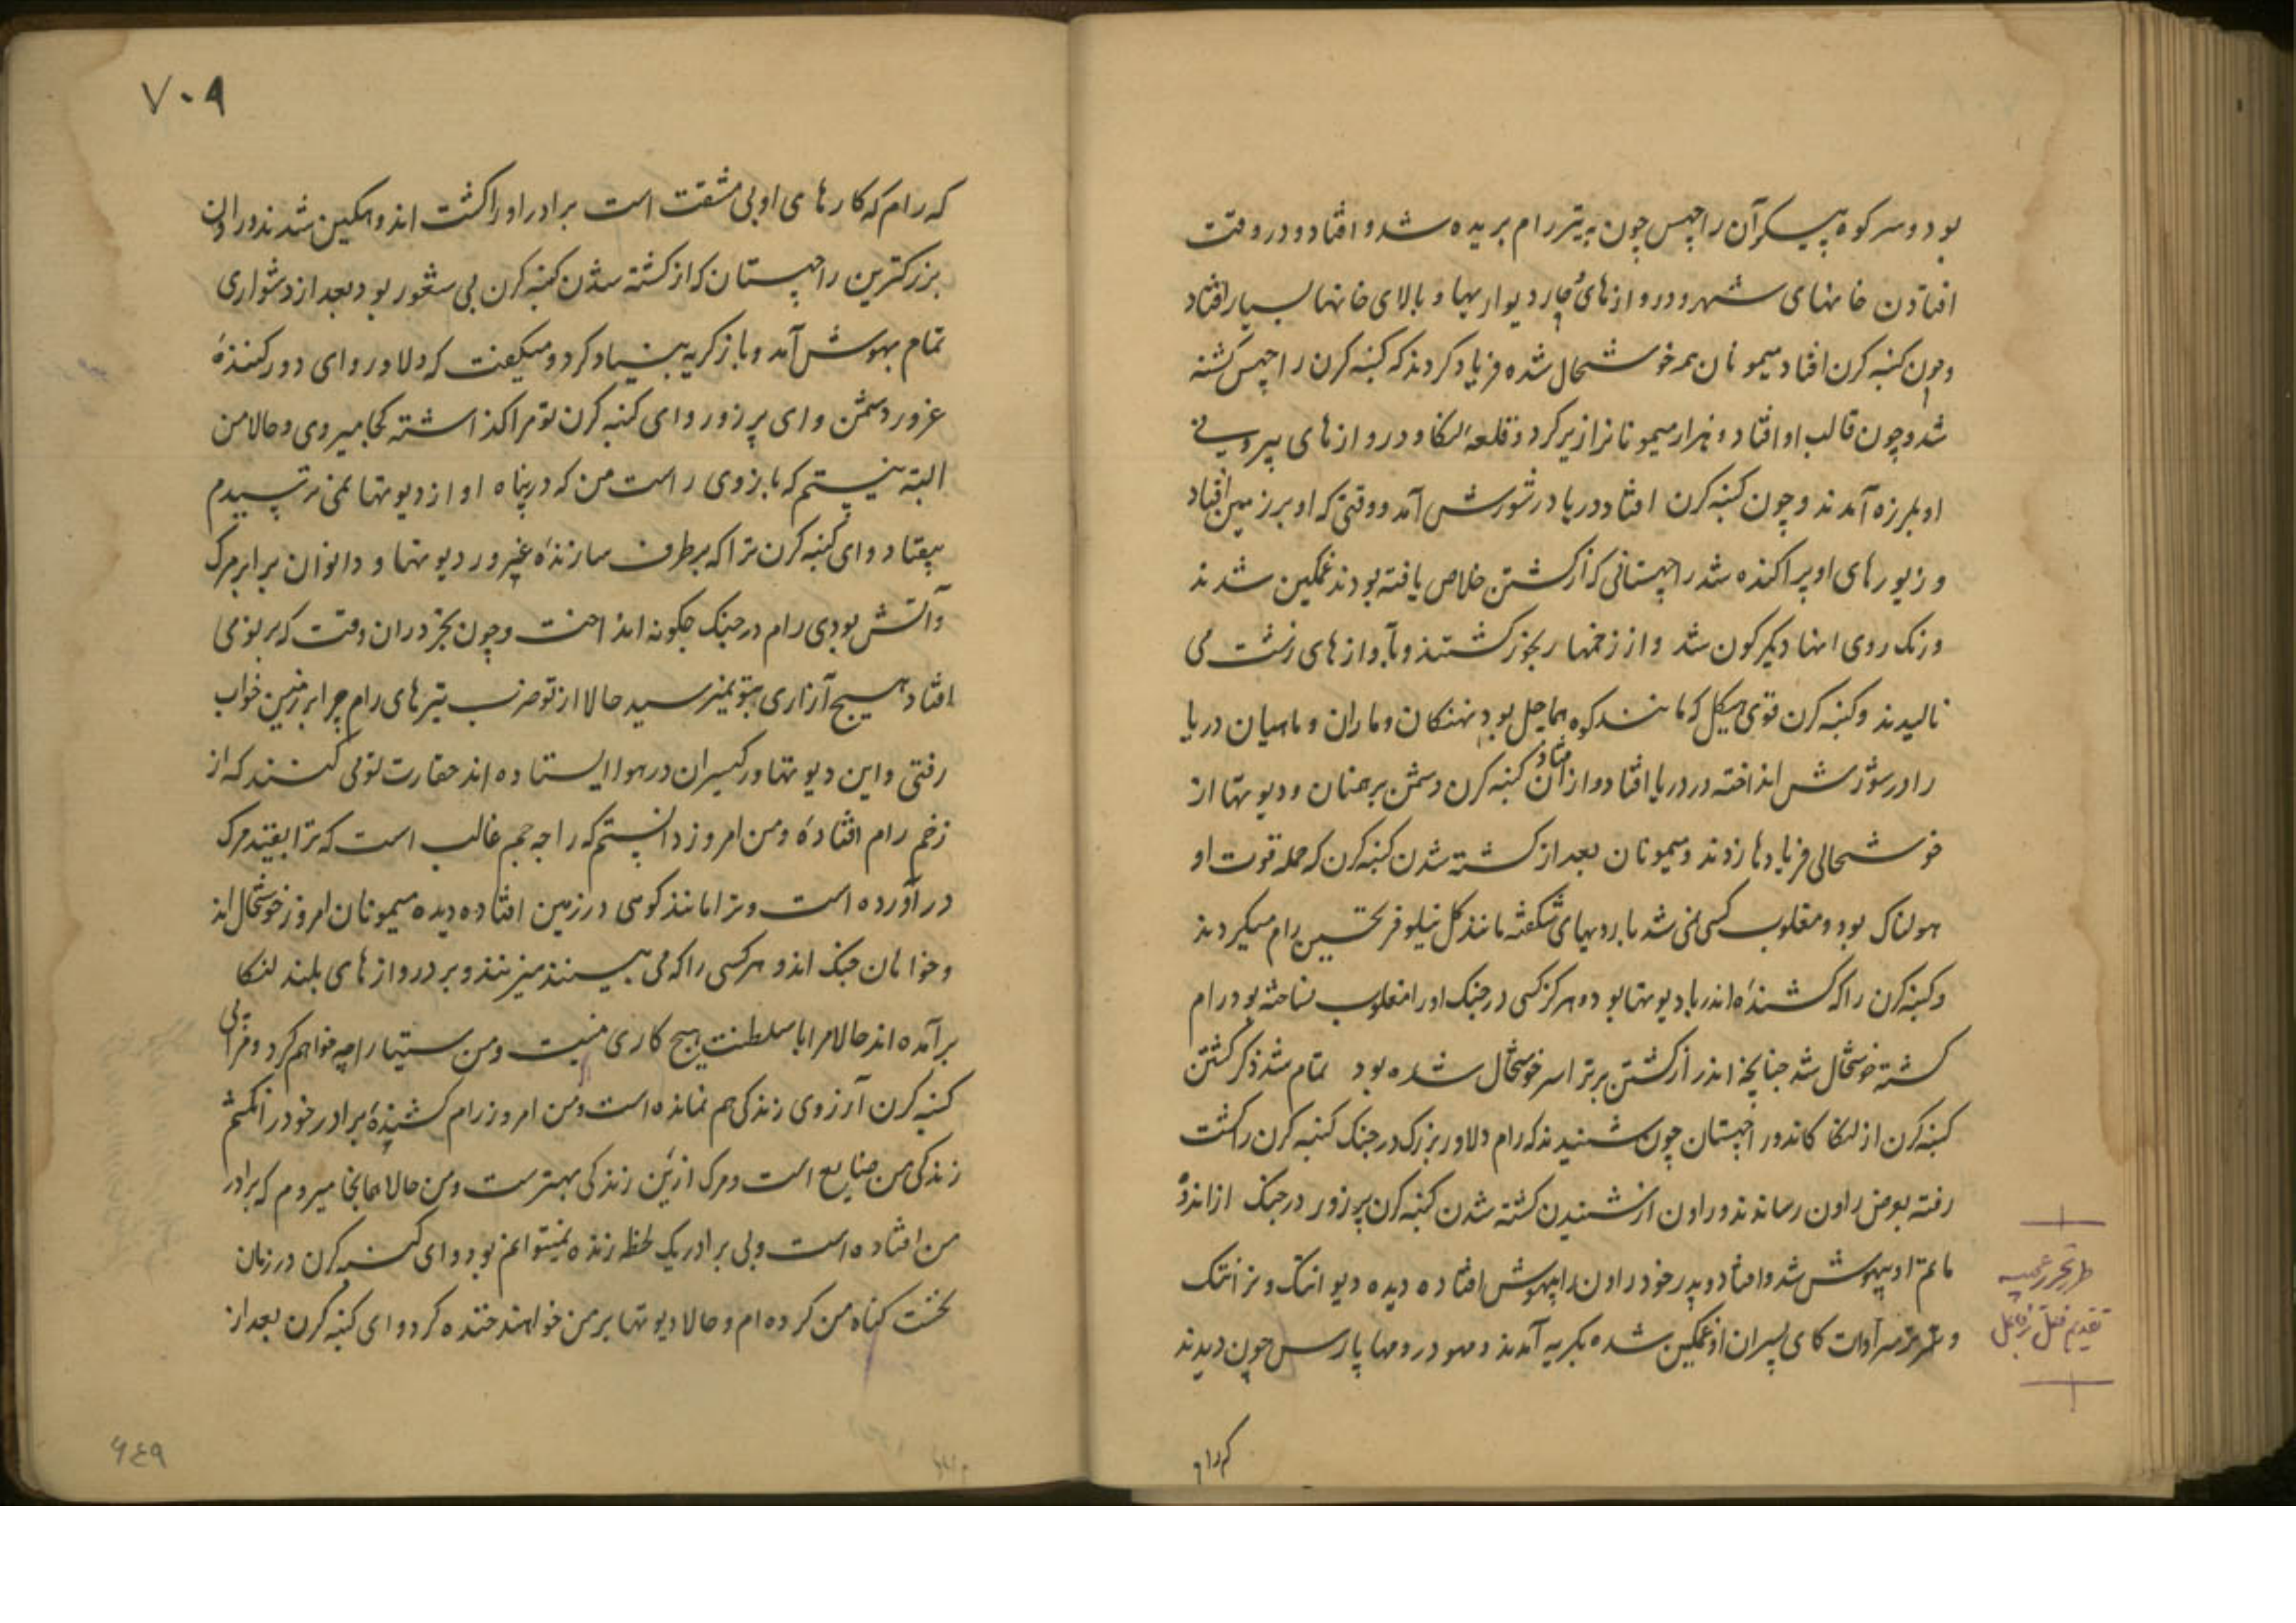 بود و سر کوه پیکر آن راچهس چون به تیر رام بریده شد و افتاد و در وقت
افتادن خانهای شهر و دروازهای چار دیواریها و بالای خانها بسیار افتاد
و چون کنبه کرن افتاد میمونان همه خوشحال شده فریاد کردند که کنبه کرن راچهس کشته
شد و چون قالب او افتاد دو هزار میمونانرا زیر کرد و قلعه لنکا و دروازهای بیرونی
او بلرزه آمدند و چون کنبه کرن افتاد دریا در شورش آمد و وقتی که او بر زمین افتاد
و زیورهای او پراکنده شد راچهستانی که از کشتن خلاص یافته بودند غمکین شدند
و رنک روی اینها دیکرکون شد و از زخمها رنجور کشتند و بآوازهای زشت می
نالیدند و کنبه کرن قوی هیکل که مانند کوه هماچل بود نهنکان و ماران و ماهیان دریا
را در شورش انداخته در دریا افتاد و از افتادن کنبه کرن دشمن برهمنان و دیوتها از
خوشحالی فریادها زدند و میمونان بعد از کشته شدن کنبه کرن که حمله قوت او
هولناک بود و مغلوب کسی نمی شد با رویهای شکفته مانند کل نیلوفر تحسین رام میکردند
و کنبه کرن را که کشنده اندر با دیوتها بوده هرکز کسی در جنک او را مغلوب نساخته بود رام
کشته خوشحال شد چنانچه اندر از کشتن برتراسر خوشحال شده بود تمام شد ذکر کشتن
کنبه کرن از لنکا کاند و راچهستان چون شنیدند که رام دلاور بزرک در جنک کنبه کرن را کشت
رفته بعرض راون رساندند و راون از شنیدن کشته شدن کنبه کرن پرزور در جنک از اندوه
ماتم او بیهوش شد و افتاد و پدر خود راون را بیهوش افتاده دیده دیوانتک و نرانتک
و ترسرا و ات کای پسران او غمکین شده بکریه آمدند و مهودر و مهاپارس چون دیدند
که رام
۷۰۹
که رام که کارهای او بی مشقت است برادر او را کشت اندوهکین شدند و راون
بزرکترین راچهستان که از کشته شدن کنبه کرن بی شعور بود بعد از دشواری
تمام بهوش آمد و باز کریه بنیاد کرد و میکفت که دلاور و ای دور کننده
غرور دشمن و ای پرزور و ای کنبه کرن تو مرا کذاشته کجا میروی و حالا من
البته نیستم که بازوی راست من که در پناه او از دیوتها نمی ترسیدم
بیفتاد و ای کنبه کرن ترا که برطرف سازنده غرور دیوتها و دانوان برابر مرک
و آتش بودی رام در جنک چکونه انداخت و چون بجر در ان وقت که بر تو می
افتاد هیچ آزاری بتو نمیرسید حالا از تو ضرب تیرهای رام چرا بر زمین خواب
رفتی و این دیوتها و رکیسران در هوا ایستاده اند حقارت تو می کنند که از
زخم رام افتاده و من امروز دانستم که راجه جم غالب است که ترا بقید مرک
در آورده است و ترا مانند کوهی در زمین افتاده دیده میمونان امروز خوشحال اند
و خواهان جنک اند و هر کسی را که می بینند میزنند و بر دروازهای بلند لنکا
بر آمده اند حالا مرا با سلطنت هیچ کاری نیست و من سیتا را چه خواهم کرد و مرا بی
کنبه کرن آرزوی زندکی هم نمانده است و من امروز رام کشنده برادر خود را نکشم
زندکی من ضایع است و مرک ازین زندکی بهترست و من حالا همانجا میروم که برادر
من افتاده است و بی برادر یک لحظه زنده نمیتوانم بود و ای کنبه کرن در زمان
نخست کناه من کرده ام و حالا دیوتها بر من خواهند خنده کرد و ای کنبه کرن بعد از
۶۴۹